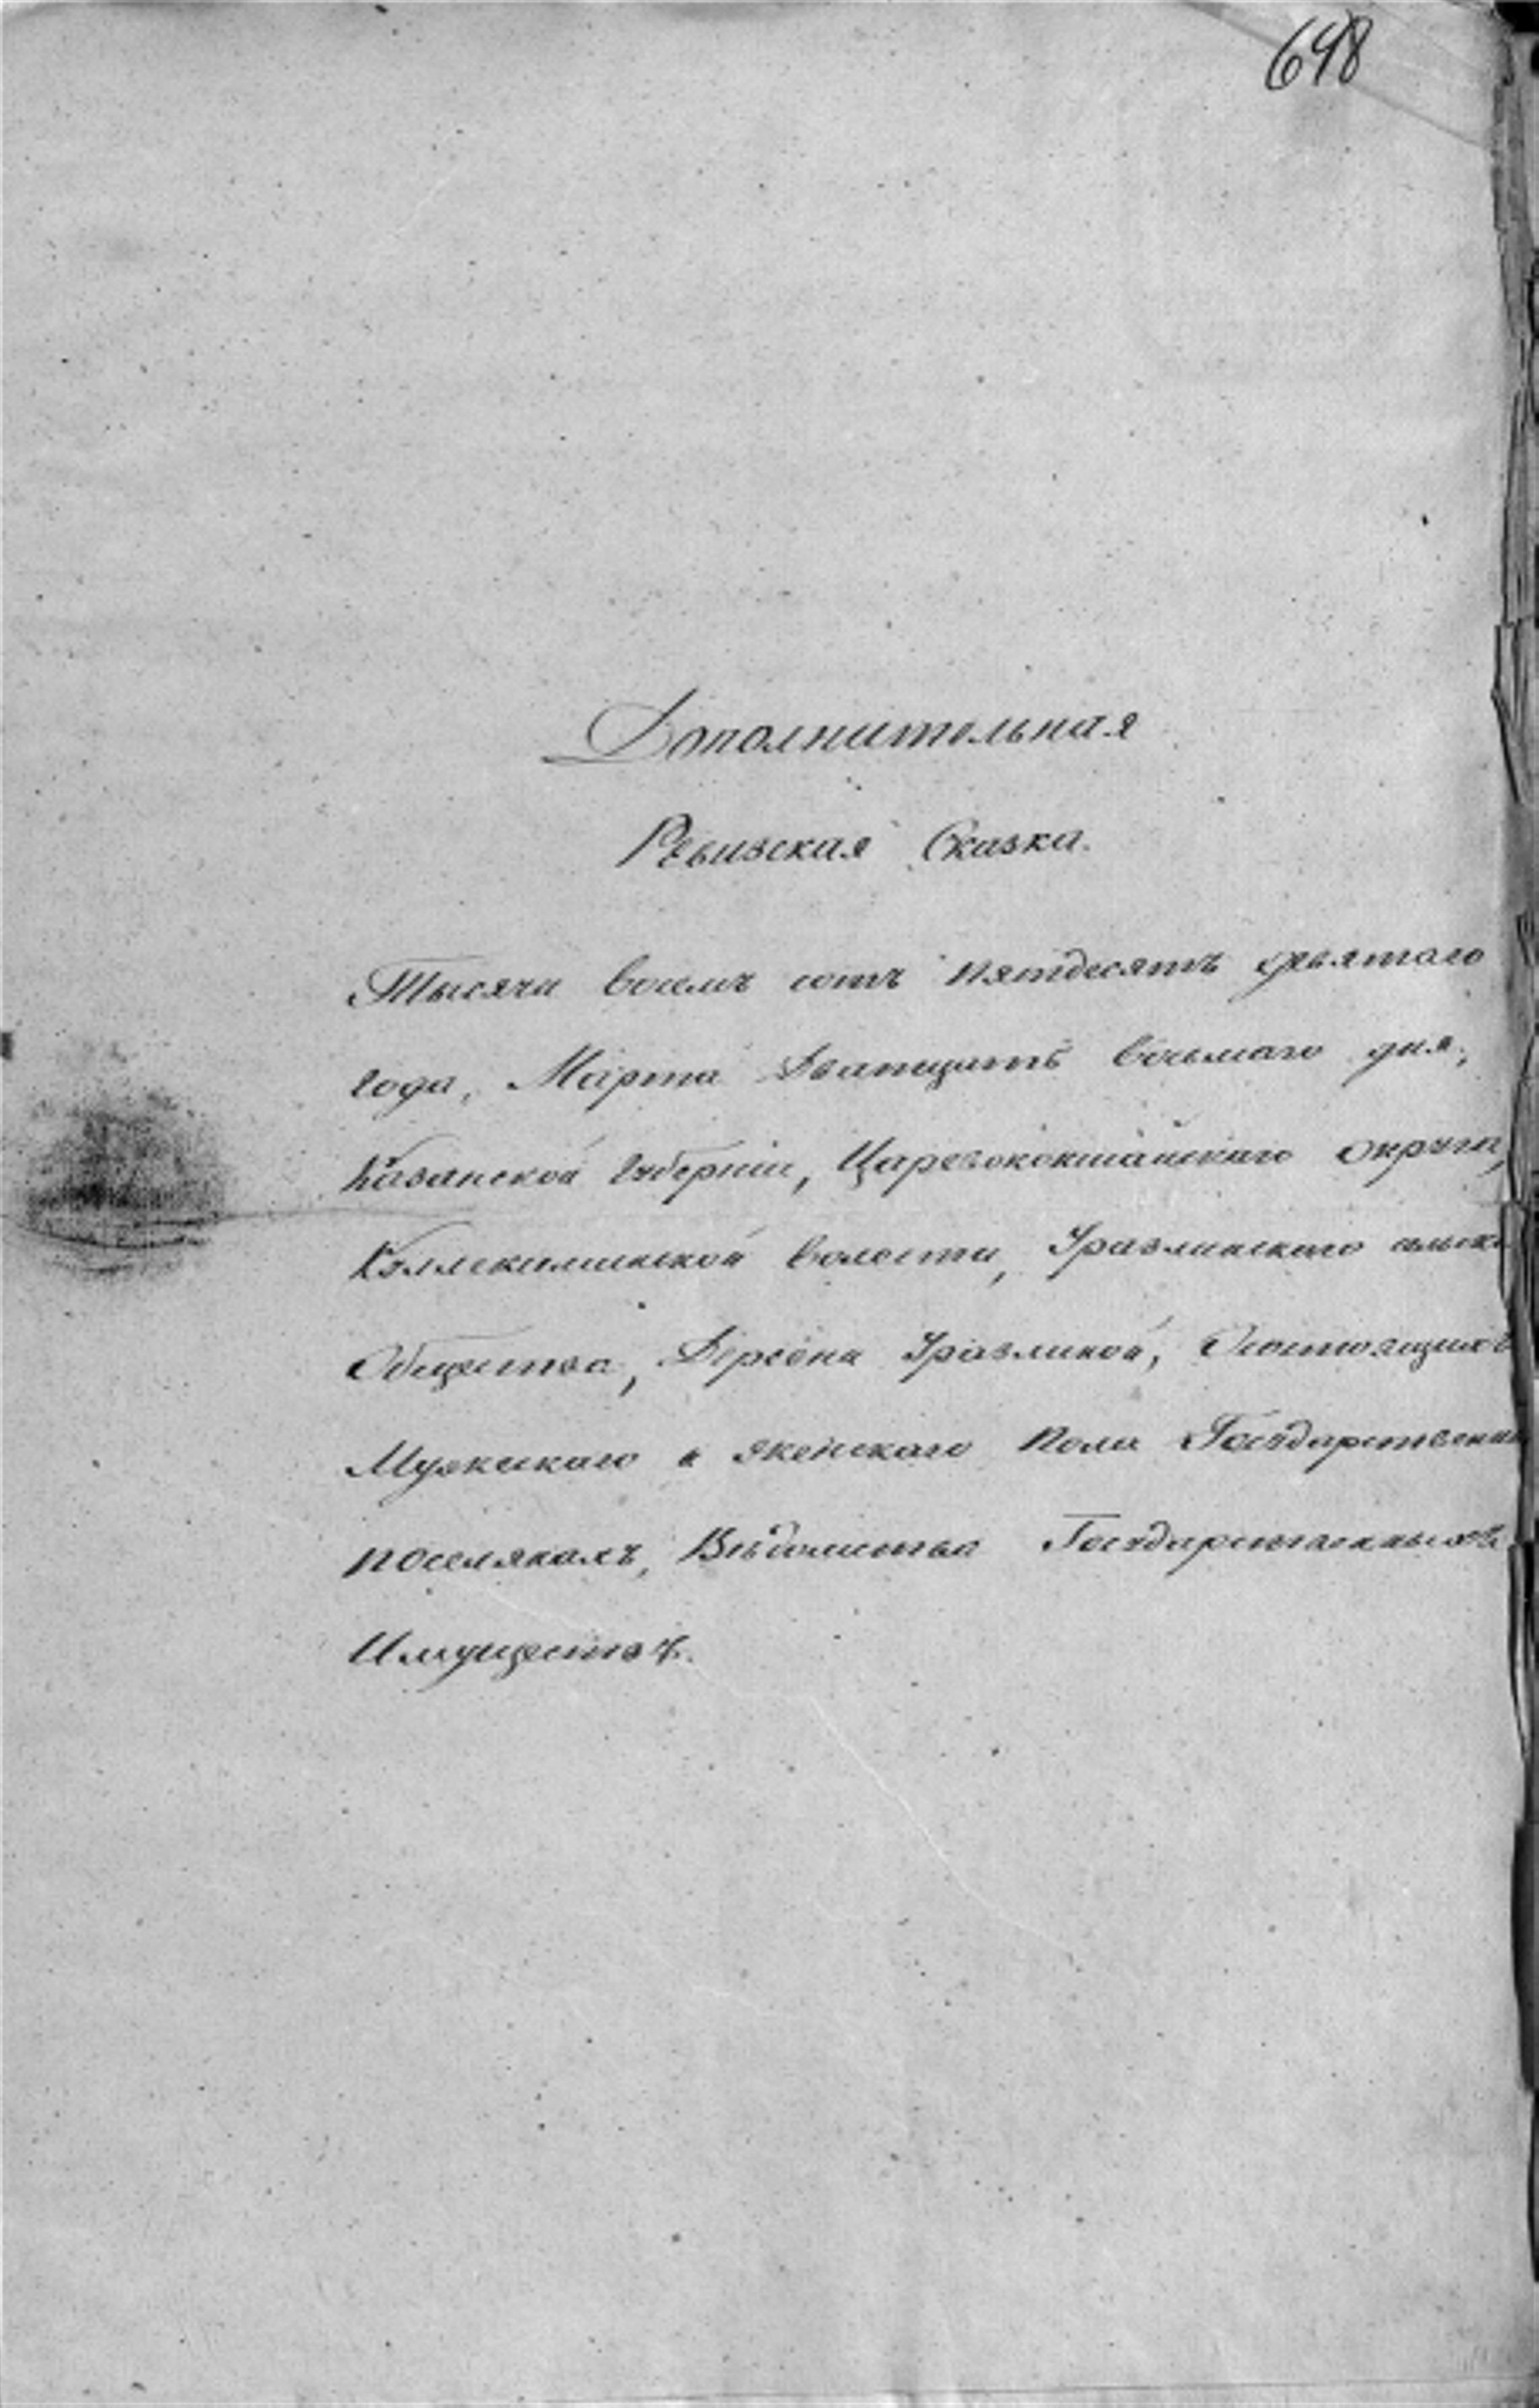 648
Дополнительная
Ревизская Сказка.
Тысяча восемь сотъ пятдесятъ девятаго
года, Марта Дватцать восьмаго дня,
Казанской Губерніи, Царевококшайскаго округа,
волости, Уразлинскаго сельска
Общества, Деревни Уразлиной, Состоящихъ
Мужескаго и женскаго пола Государственны
поселянахъ, Вѣдомства Государственныхъ
Имуществъ.